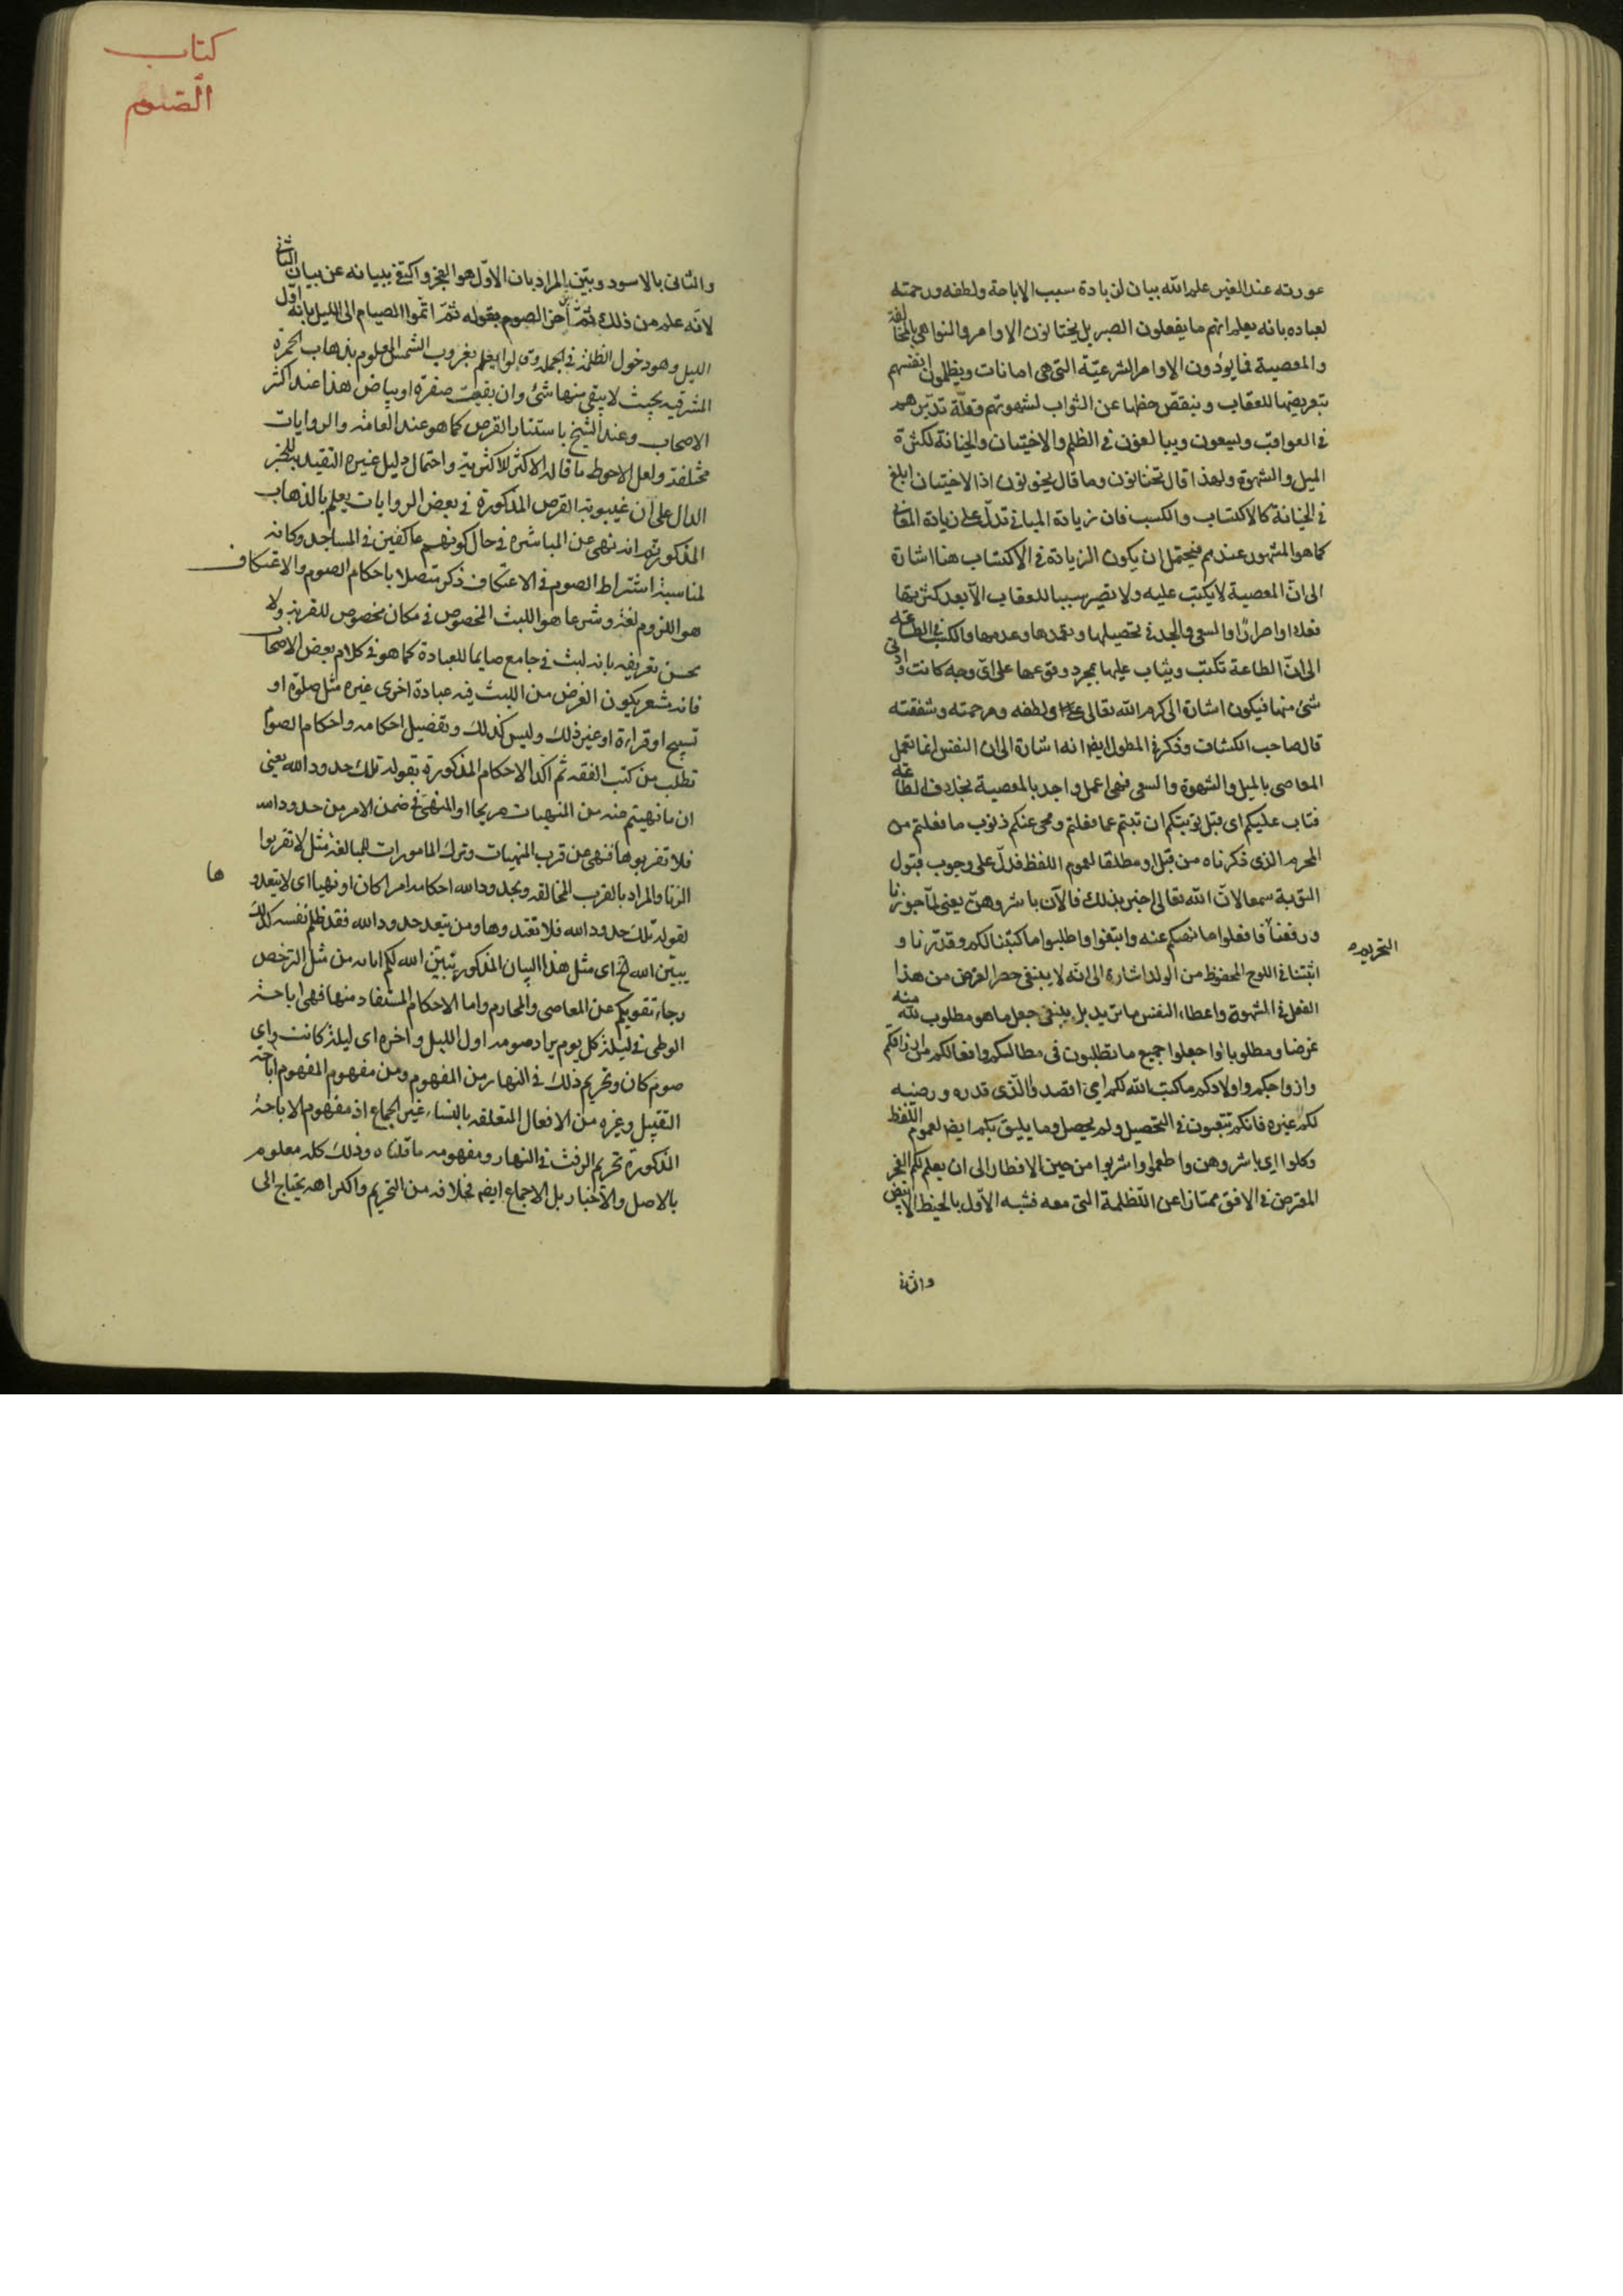 عورته عند الغير علم الله بيان لزيادة سبب الاباحة ولطفه ورحمته
لعباده بانه يعلم انهم ما يفعلون الصبر بل يختانون الاوامر والنواهي بالمخالفة
والمعصية فما يؤدون الاوامر الشرعيّة التي هي امانات ويظلمون انفسهم
بتعريضها للعقاب وينقص حظها عن الثواب لشهوتهم وقلّة تدبّرهم
في العواقب ويسعون ويبالغون في الظلم والاختيان والخيانة لكثرة
الميل والشهوة ولهذا قال تختانون وما قال تخونون اذ الاختيان ابلغ
في الخيانة كالاكتساب والكسب فان زيادة المباني تدلّ على زيادة المعاني
كما هو المشهور عندهم فيحتمل ان يكون الزيادة في الاكتساب هنا اشارة
الى انّ المعصية لا يكتب عليه ولا تصير سببا للعقاب الا بعد كثرتها
فعلا او اصرارًا والسعي والجد في تحصيلها وتعمدها وعدمها والكسب في الطاعة
الى انّ الطاعة تكتب ويثاب عليها بمجرد وقوعها على اىّ وجه كانت وادنى
شئ منها فيكون اشارة الى كرم الله تعالى ولطفه ومرحمته وشفقته
قال صاحب الكشاف وذكر في المطول ايضا انه اشارة الى ان النفس انما تعمل
المعاصى بالميل والشهوة والسعى فهى اعمل واجد بالمعصية بخلاف الطاعة
فتاب عليكم اى قبل توبتكم ان تبتم عما فعلتم ومحى عنكم ذنوب ما فعلتم من
المحرم الذى ذكرناه من قبل او مطلقا لعموم اللفظ فدلّ على وجوب قبول
التوبة سمعا لانّ الله تعالى اخبر بذلك فالآن باشروهنّ يعنى لما جوزنا
ورفعنا التحريم فافعلوا ما نهيكم عنه وابتغوا واطلبوا ما كتبنا لكم وقدّرنا و
اثبتنا في اللوح المحفوظ من الولد اشارة الى انّه لا ينبغى حصر الغرض من هذا
الفعل في الشهوة واعطاء النفس ما تريد بل ينبغى جعل ما هو مطلوب لله منه
غرضا ومطلوبا او اجعلوا جميع ما تطلبون في مطالبكم وافعالكم من ارزاقكم
وازواجكم واولادكم ما كتب الله لكم اي اقصدوا الّذى قدره ورضيه
لكم غيره فانكم تتعبون في التحصيل ولم يحصل وما يليق بكم ايضا لعموم اللفظ
وكلوا اى باشروهن واطعموا واشربوا من حين الافطار الى ان يعلم لكم الفجر
المعترض في الافق ممتازا عن الظلمة التى معه فشبه الاوّل بالخيط الابيض
والثانى
كتاب
الصّوم
والثانى بالاسود وبيّن المراد بان الاوّل هو الفجر واكتفى ببيانه عن بيان الثاني
لانّه علم من ذلك ثمّ بيّن آخر الصوم بقوله ثمّ اتمّوا الصيام الى الليل بانه اوّل
الليل وهو دخول الظلمة في الجملة وقالوا يعلم بغروب الشمس المعلوم بذهاب الحمرة
المشرقيه بحيث لا يبقى منها شئ وان بقيت صفرة او بياض هذا عند اكثر
الاصحاب وعند الشيخ باستتار القرص كما هو عند العامة والروايات
مختلفة ولعل الاحوط ما قاله الاكثر للاكثرية واحتمال دليل غيره التقييد بالخبر
الدال على ان غيبوبة القرص المذكورة في بعض الروايات يعلم بالذهاب
المذكور ثم انه نهى عن المباشرة في حال كونهم عاكفين في المساجد وكانه
لمناسبة اشتراط الصوم في الاعتكاف ذكر متصلا باحكام الصوم والاعتكاف
هو اللزوم لغة وشرعا هو اللبث المخصوص في مكان مخصوص للقربة ولا
يحسن تعريفه بانه لبث في جامع صايما للعبادة كما هو في كلام بعض الاصحاب
فانه يشعر بكون الغرض من اللبث فيه عبادة اخرى غيره مثل صلوة او
تسبيح او قراءة او غير ذلك وليس كذلك وتفصيل احكامه واحكام الصوم
تطلب من كتب الفقه ثم اكد الاحكام المذكورة بقوله تلك حدود الله يعنى
ان ما نهيتم عنه من المنهيات صريحا او المنهىّ في ضمن الامر من حدود الله
فلا تقربوها فنهى عن قرب المنهيات وترك المامورات للمبالغة مثل لا تقربوا
الزنا والمراد بالقرب المخالفه وبحدود الله احكامه امرا كان او نهيا اى لا يتعدوها
لقوله تلك حدود الله فلا تعتدوها ومن يتعد حدود الله فقد ظلم نفسه كذلك
يبيّن الله الخ اى مثل هذا البيان المذكور يبيّن الله لكم اياته من مثل الترخص
رجاء تقويكم عن المعاصى والمحارم واما الاحكام المستفاد منها فهى اباحة
الوطى في ليلة كل يوم يراد صومه اول الليل واخره اى ليلة كانت واي
صوم كان وتحريم ذلك في النهار من المفهوم ومن مفهوم المفهوم اباحة
التقبيل وغيره من الافعال المتعلقه بالنساء غير الجماع اذ مفهوم الاباحة
المذكورة تحريم الرفث في النهار ومفهومه ما قلناه وذلك كله معلوم
بالاصل والاخبار بل الاجماع ايضا فخلافه من التحريم والكراهه يحتاج الى